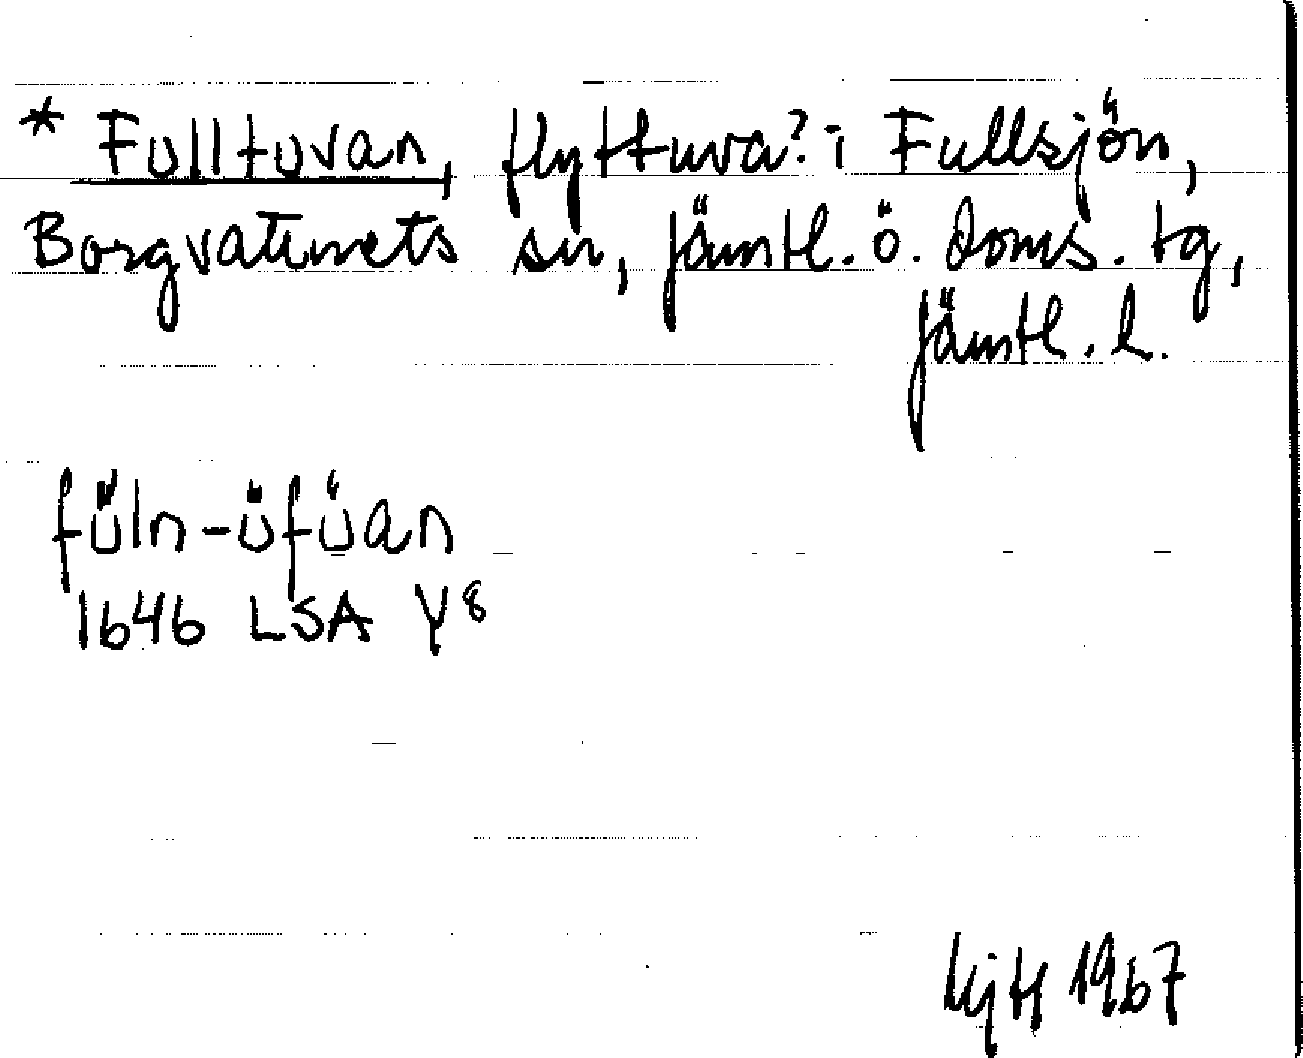 * Fulltuvan, flyttuva? i Fullsjön,
Borgvattnets sn, Jämtl. ö. doms. tg,
Jämtl. l.
fűln-űfűan
1646 LSA Y8
1967